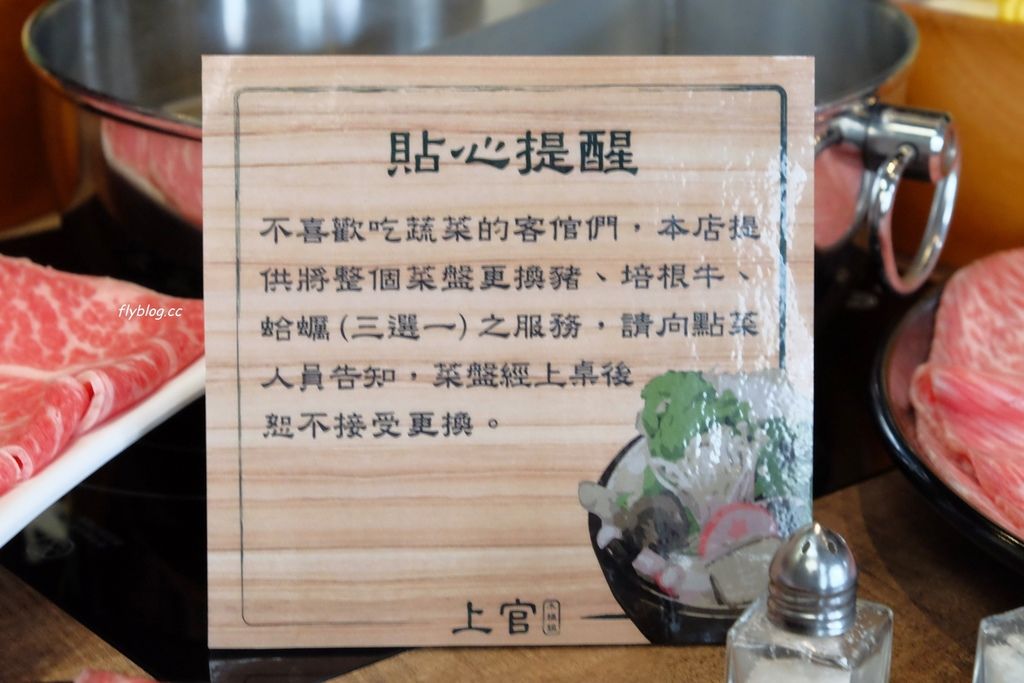 貼心提醒
不喜歡吃蔬菜的客倌們，本店提
供將整個菜盤更換豬、培根牛、
蛤蠣(三選一)之服務，請向點菜
人員告知，菜盤經上桌後
恕不接受更換。
上官
flyblog.cc